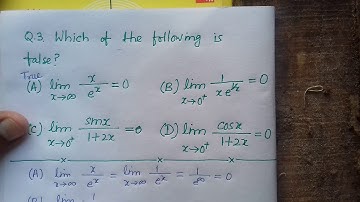 Q.3. Which of the following is
false?
True
(A) lim x→∞ x/e^x = 0 (B) lim x→0⁺ 1/(x e^(1/x)) = 0
(C) lim x→0⁺ sinx/(1+2x) = 0 (D) lim x→0⁺ cosx/(1+2x) = 0
(A) lim x→∞ x/e^x = lim x→∞ 1/e^x = 1/e^∞ = 0